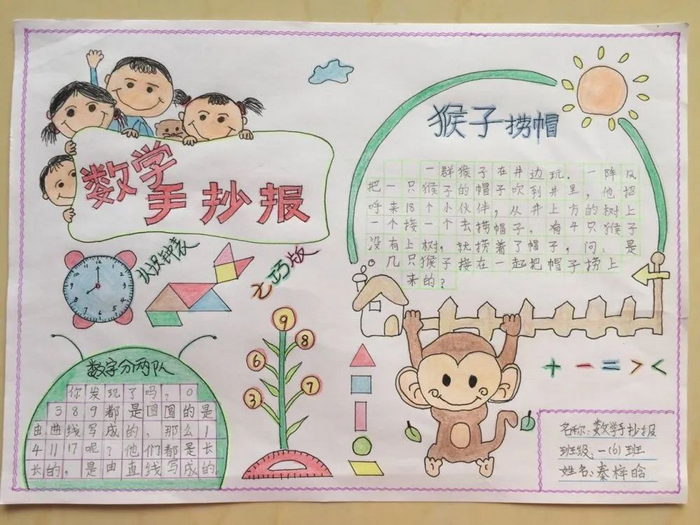 数学
手抄报
猴子捞帽
一群猴子在井边玩.一阵风
把一只猴子的帽子吹到井里,他招
呼来18个小伙伴,从井上方的树上
一个接一个去捞帽子,有4只猴子
没有上树,就捞着了帽子,问:是
几只猴子接在一起把帽子捞上
来的?
认识钟表
七巧版
数字分两队
你发现了吗,0
3 8 9都是圆圆的是
由曲线写成的,那么1
4 11 17呢?他们都是长
长的,是由直线写成的
9
6
8
3
7
+ - = > <
名称:数学手抄报
班级:一(6)班
姓名:秦梓晗